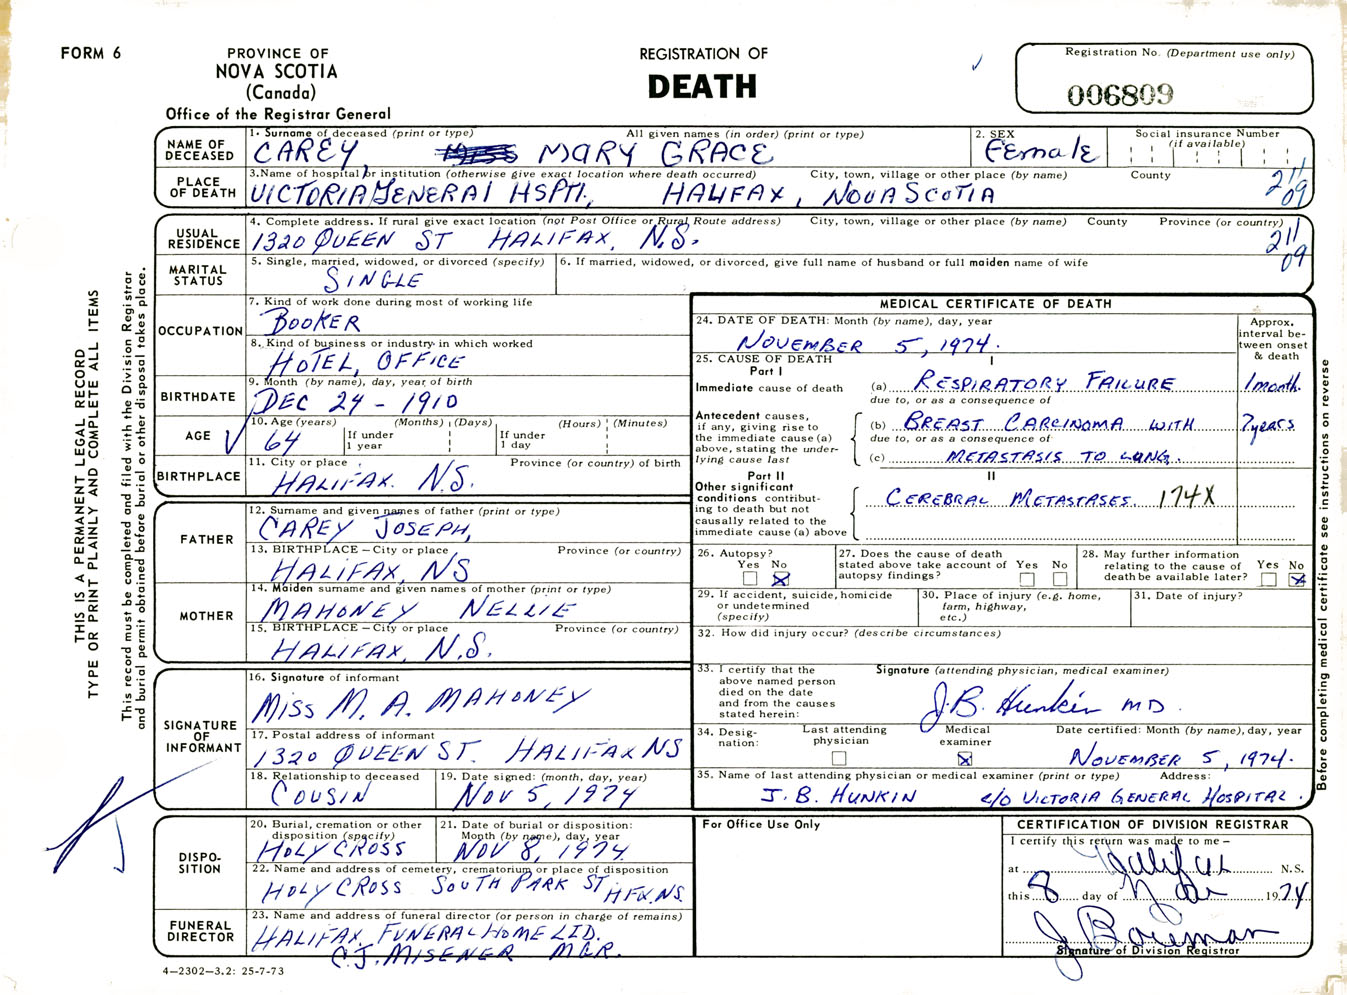 FORM 6
PROVINCE OF
NOVA SCOTIA
(Canada)
Office of the Registrar General
REGISTRATION OF
DEATH
Registration No. (Department use only)
006809
NAME OF DECEASED
1. Surname of deceased (print or type) All given names (in order) (print or type)
CAREY, MARY GRACE
2. SEX
Female
Social insurance Number
(if available)
PLACE OF DEATH
3. Name of hospital or institution (otherwise give exact location where death occurred) City, town, village or other place (by name) County
VICTORIA GENERAl HSPTl., HALIFAX, NOVA SCOTIA
211
09
USUAL RESIDENCE
4. Complete address. If rural give exact location (not Post Office or Rural Route address) City, town, village or other place (by name) County Province (or country)
1320 QUEEN ST HALIFAX, N.S.
211
09
MARITAL STATUS
5. Single, married, widowed, or divorced (specify)
SINGLE
6. If married, widowed, or divorced, give full name of husband or full maiden name of wife
OCCUPATION
7. Kind of work done during most of working life
BOOKER
8. Kind of business or industry in which worked
HOTEL, OFFICE
BIRTHDATE
9. Month (by name), day, year of birth
DEC 24 - 1910
AGE
10. Age (years) (Months) (Days) (Hours) (Minutes)
64
If under 1 year
If under 1 day
BIRTHPLACE
11. City or place Province (or country) of birth
HALIFAX. N.S.
FATHER
12. Surname and given names of father (print or type)
CAREY JOSEPH,
13. BIRTHPLACE – City or place Province (or country)
HALIFAX, NS
MOTHER
14. Maiden surname and given names of mother (print or type)
MAHONEY NELLIE
15. BIRTHPLACE – City or place Province (or country)
HALIFAX, N.S.
SIGNATURE OF INFORMANT
16. Signature of informant
MISS M. A. MAHONEY
17. Postal address of informant
1320 QUEEN ST. HALIFAX NS
18. Relationship to deceased
COUSIN
19. Date signed: (month, day, year)
NOV 5, 1974
DISPO-
SITION
20. Burial, cremation or other disposition (specify)
HOLY CROSS
21. Date of burial or disposition: Month (by name), day, year
NOV 8, 1974
22. Name and address of cemetery, crematorium or place of disposition
HOLY CROSS SOUTH PARK ST HFX. NS.
FUNERAL DIRECTOR
23. Name and address of funeral director (or person in charge of remains)
HALIFAX FUNERAL HOME LTD.
C.J. MISENER MGR.
4—2302—3.2: 25-7-73
MEDICAL CERTIFICATE OF DEATH
24. DATE OF DEATH: Month (by name), day, year
NOVEMBER 5, 1974.
Approx. interval be-
tween onset & death
25. CAUSE OF DEATH
Part I
I
Immediate cause of death
(a) RESPIRATORY FAILURE 1 month.
due to, or as a consequence of
Antecedent causes, if any, giving rise to the immediate cause (a) above, stating the under-
lying cause last
(b) BREAST CARCINOMA WITH 7 years
due to, or as a consequence of
(c) METASTASIS TO LUNG.
Part II
II
Other significant conditions contribut-
ing to death but not causally related to the immediate cause (a) above
CEREBRAL METASTASES. 174X
26. Autopsy?
Yes No
27. Does the cause of death stated above take account of autopsy findings?
Yes No
28. May further information relating to the cause of death be available later?
Yes No
29. If accident, suicide, homicide or undetermined (specify)
30. Place of injury (e.g. home, farm, highway, etc.)
31. Date of injury?
32. How did injury occur? (describe circumstances)
33. I certify that the above named person died on the date and from the causes stated herein:
Signature (attending physician, medical examiner)
J.B. Hunkin MD.
34. Desig-
nation:
Last attending physician
Medical examiner
Date certified: Month (by name), day, year
NOVEMBER 5, 1974.
35. Name of last attending physician or medical examiner (print or type) Address:
J. B. HUNKIN c/o VICTORIA GENERAL HOSPITAL.
For Office Use Only
CERTIFICATION OF DIVISION REGISTRAR
I certify this return was made to me –
at Halifax N.S.
this 8 day of Nov 1974
J Boreman
Signature of Division Registrar
THIS IS A PERMANENT LEGAL RECORD
TYPE OR PRINT PLAINLY AND COMPLETE ALL ITEMS
This record must be completed and filed with the Division Registrar
and burial permit obtained before burial or other disposal takes place.
Before completing medical certificate see instructions on reverse